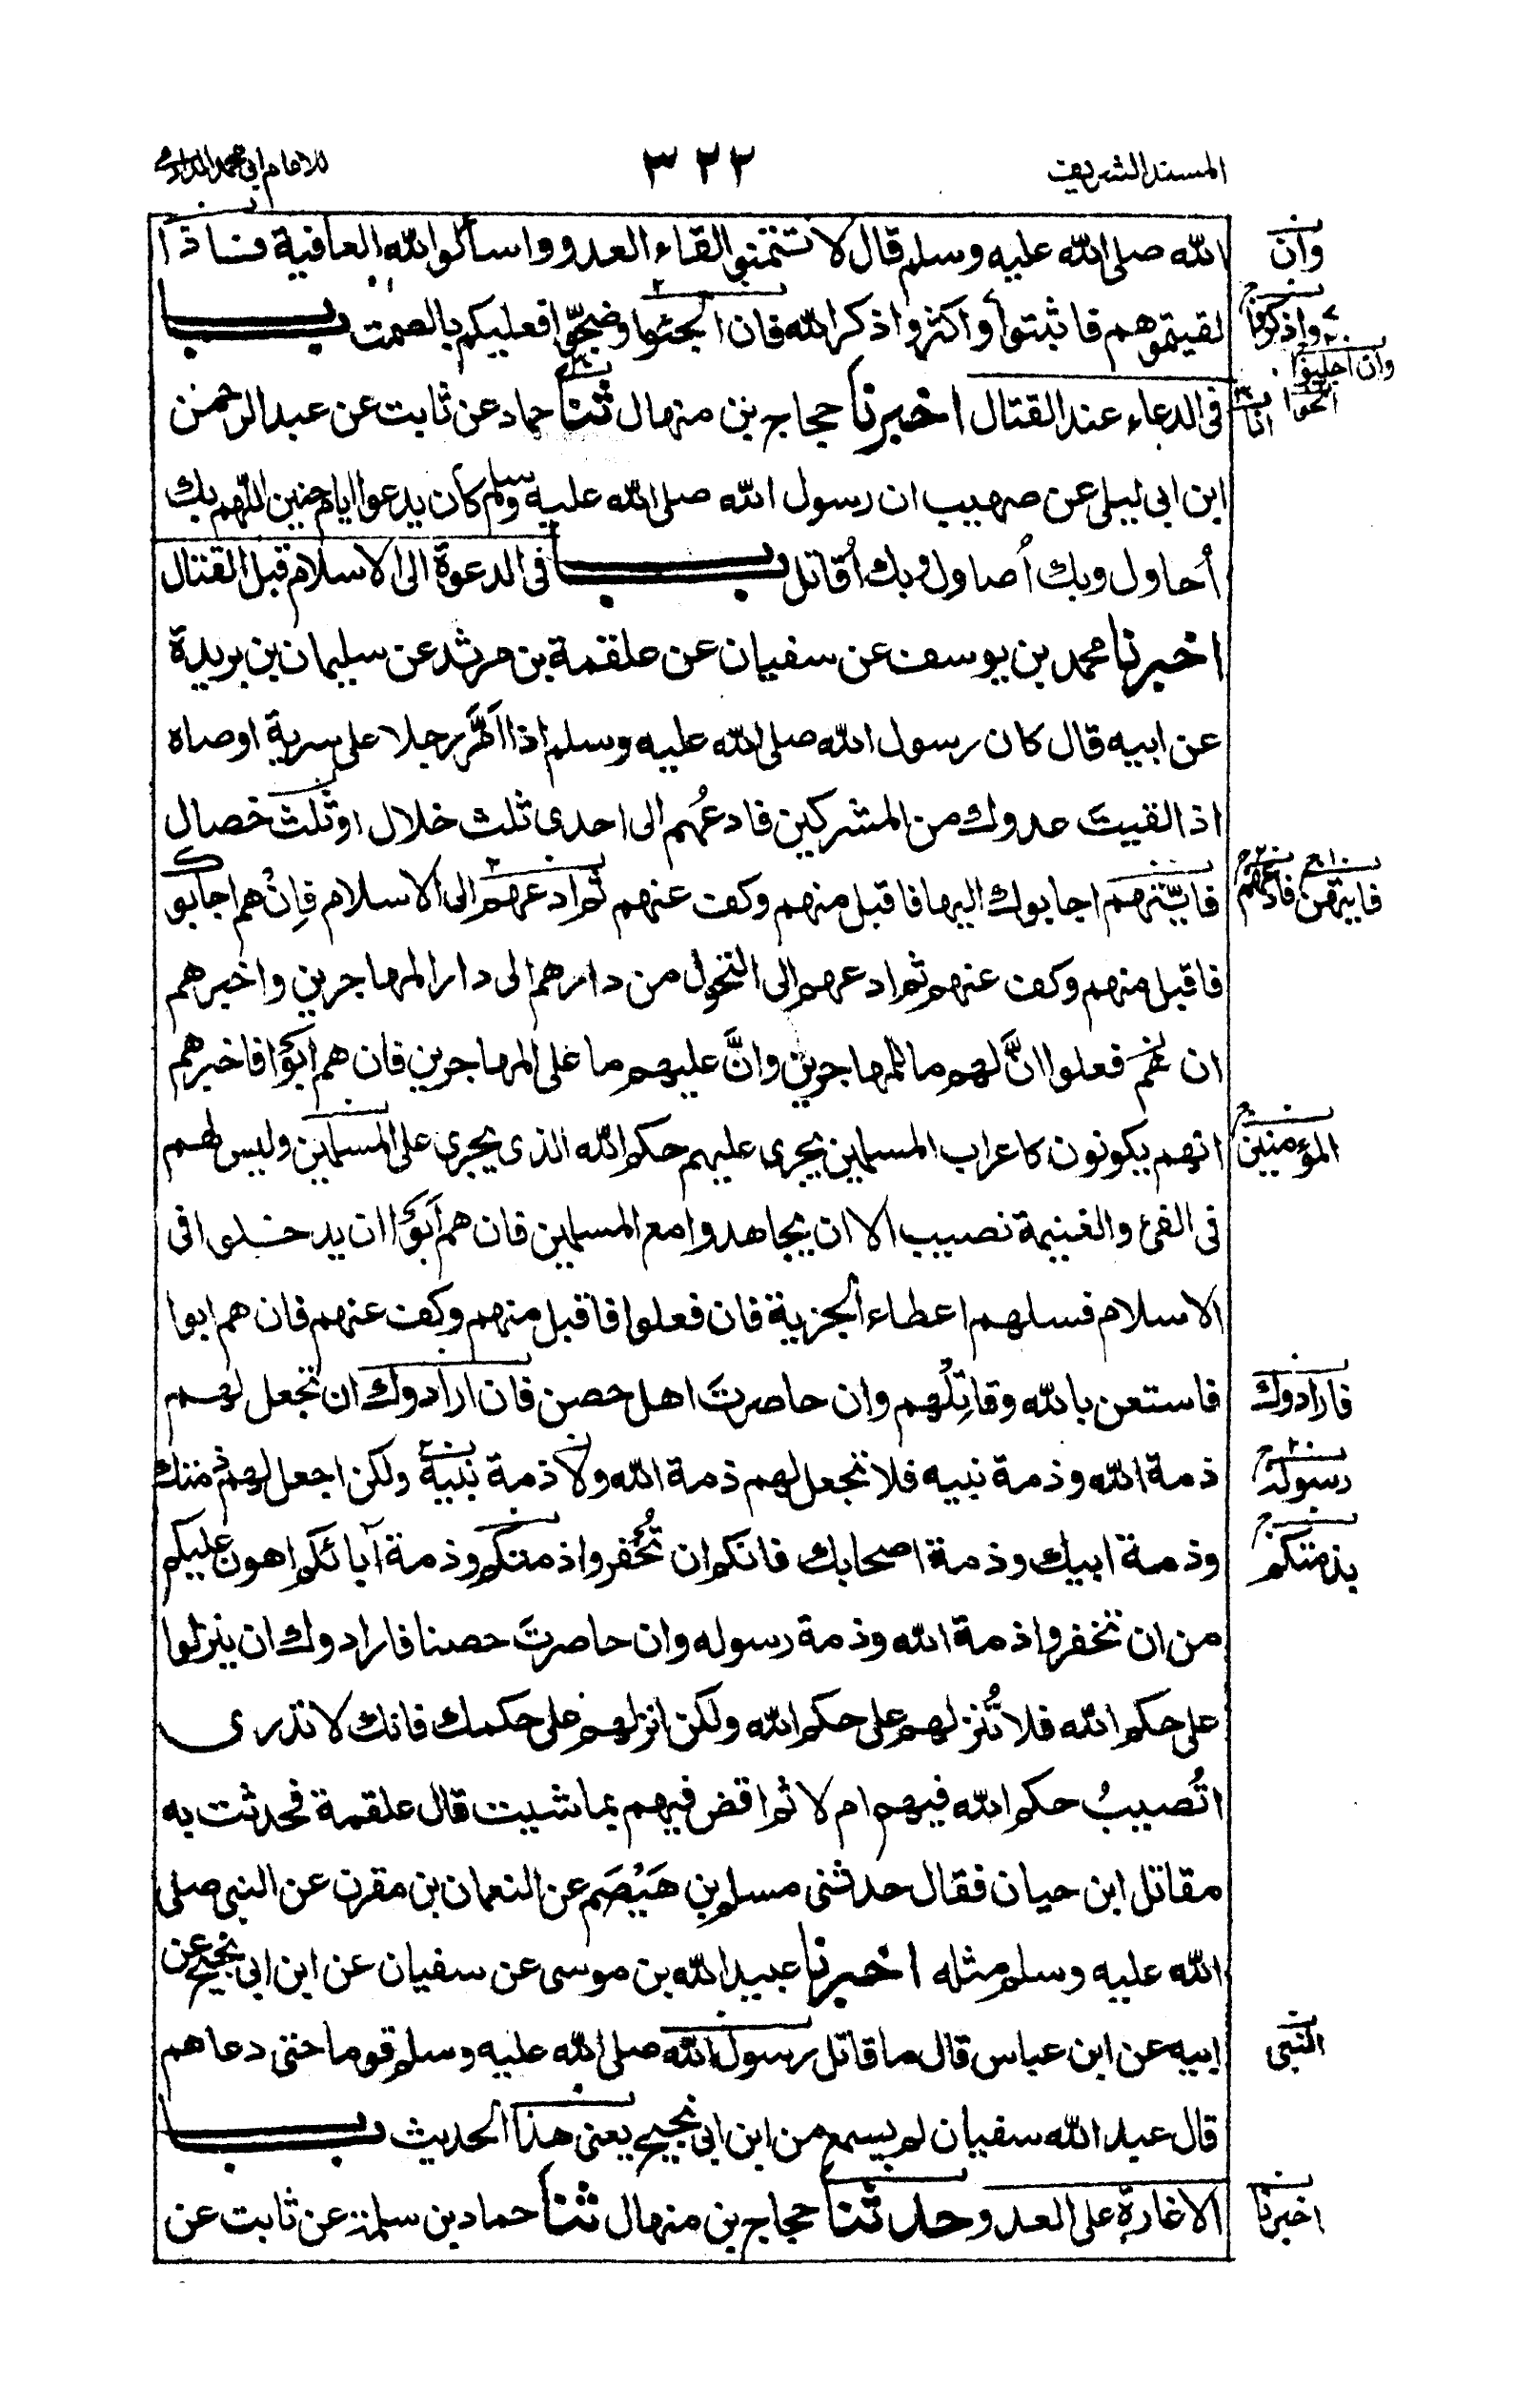 المسند الشريف
٣٢٢
للامام ابي محمد الدارمي
الله صلى الله عليه وسلم قال لا تتمنوا لقاء العدو واسألوا الله العافية فاذا
وان
لقيتموهم فاثبتوا واكثروا ذكر الله فان اجلبوا وضجوا فعليكم بالصمت باب
واذكروا
وان اجلبوا
في الدعاء عند القتال اخبرنا حجاج بن منهال ثنا حماد عن ثابت عن عبد الرحمن
انا
ابن ابي ليلى عن صهيب ان رسول الله صلى الله عليه وسلم كان يدعوا ايام حنين اللهم بك
أحاول وبك أصاول وبك أقاتل باب في الدعوة الى الاسلام قبل القتال
اخبرنا محمد بن يوسف عن سفيان عن علقمة بن مرثد عن سليمان بن بريدة
عن ابيه قال كان رسول الله صلى الله عليه وسلم اذا امّر رجلا على سرية اوصاه
اذا لقيت عدوك من المشركين فادعُهم الى احدى ثلث خلال او ثلث خصال
فايّتهم اجابوك اليها فاقبل منهم وكف عنهم ثم ادعهم الى الاسلام فاِنْ هم اجابوك
فايتهن
فادعهم
فاقبل منهم وكف عنهم ثم ادعهم الى التحول من دارهم الى دار المهاجرين واخبرهم
ان هم فعلوا انَّ لهم ما للمهاجرين وانَّ عليهم ما على المهاجرين فان هم ابَوْا فاخبرهم
انهم يكونون كاعراب المسلمين يجرى عليهم حكم الله الذى يجرى على المسلمين وليس لهم
المؤمنين
فى الفئ والغنيمة نصيب الا ان يجاهدوا مع المسلمين فان هم اَبَوْا ان يدخلوا فى
الاسلام فسلهم اعطاء الجزية فان فعلوا فاقبل منهم وكف عنهم فان هم ابوا
فاستعن بالله وقاتِلْهم وان حاصرتَ اهل حصن فان ارادوك ان تجعل لهم
فارادوك
ذمة الله وذمة نبيه فلا تجعل لهم ذمة الله ولا ذمة نبيه ولكن اجعل لهم ذمتك
رسوله
وذمة ابيك وذمة اصحابك فانكم ان تُخفروا ذمتكم وذمة آبائكم اهون عليكم
بذمتكم
من ان تخفروا ذمة الله وذمة رسوله وان حاصرتَ حصنا فارادوك ان ينزلوا
على حكم الله فلا تُنزلهم على حكم الله ولكن انزلهم على حكمك فانك لا تدرى
اتُصيبُ حكم الله فيهم ام لا ثم اقض فيهم بما شيت قال علقمة فحدثت به
مقاتل ابن حيان فقال حدثنى مسلم بن هَيْصَم عن النعمان بن مقرن عن النبى صلى
الله عليه وسلم مثله اخبرنا عبيد الله بن موسى عن سفيان عن ابن ابى نجيح عن
ابيه عن ابن عباس قال ما قاتل رسول الله صلى الله عليه وسلم قوما حتى دعاهم
النبى
قال عبد الله سفيان لم يسمع من ابن ابى نجيح يعنى هذا الحديث باب
الاغارة على العدو حدثنا حجاج بن منهال ثنا حماد بن سلمة عن ثابت عن
اخبرنا